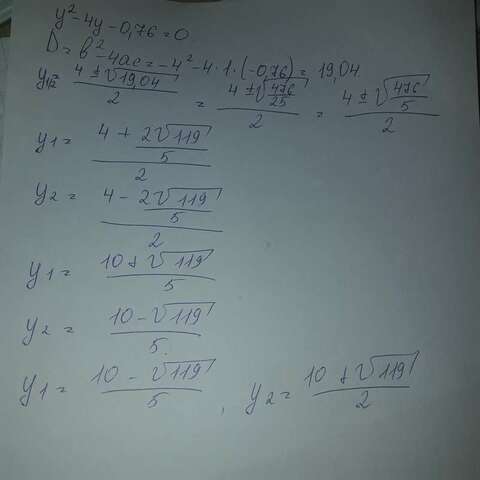 y² - 4y - 0,76 = 0
D = b² - 4ac = -4² - 4·1·(-0,76) = 19,04.
y1/2 = (4 ± √19,04)/2 = (4 ± √(476/25))/2 = (4 ± √476/5)/2
y1 = (4 + 2√119/5)/2
y2 = (4 - 2√119/5)/2
y1 = (10 + √119)/5
y2 = (10 - √119)/5.
y1 = (10 - √119)/5, y2 = (10 + √119)/2